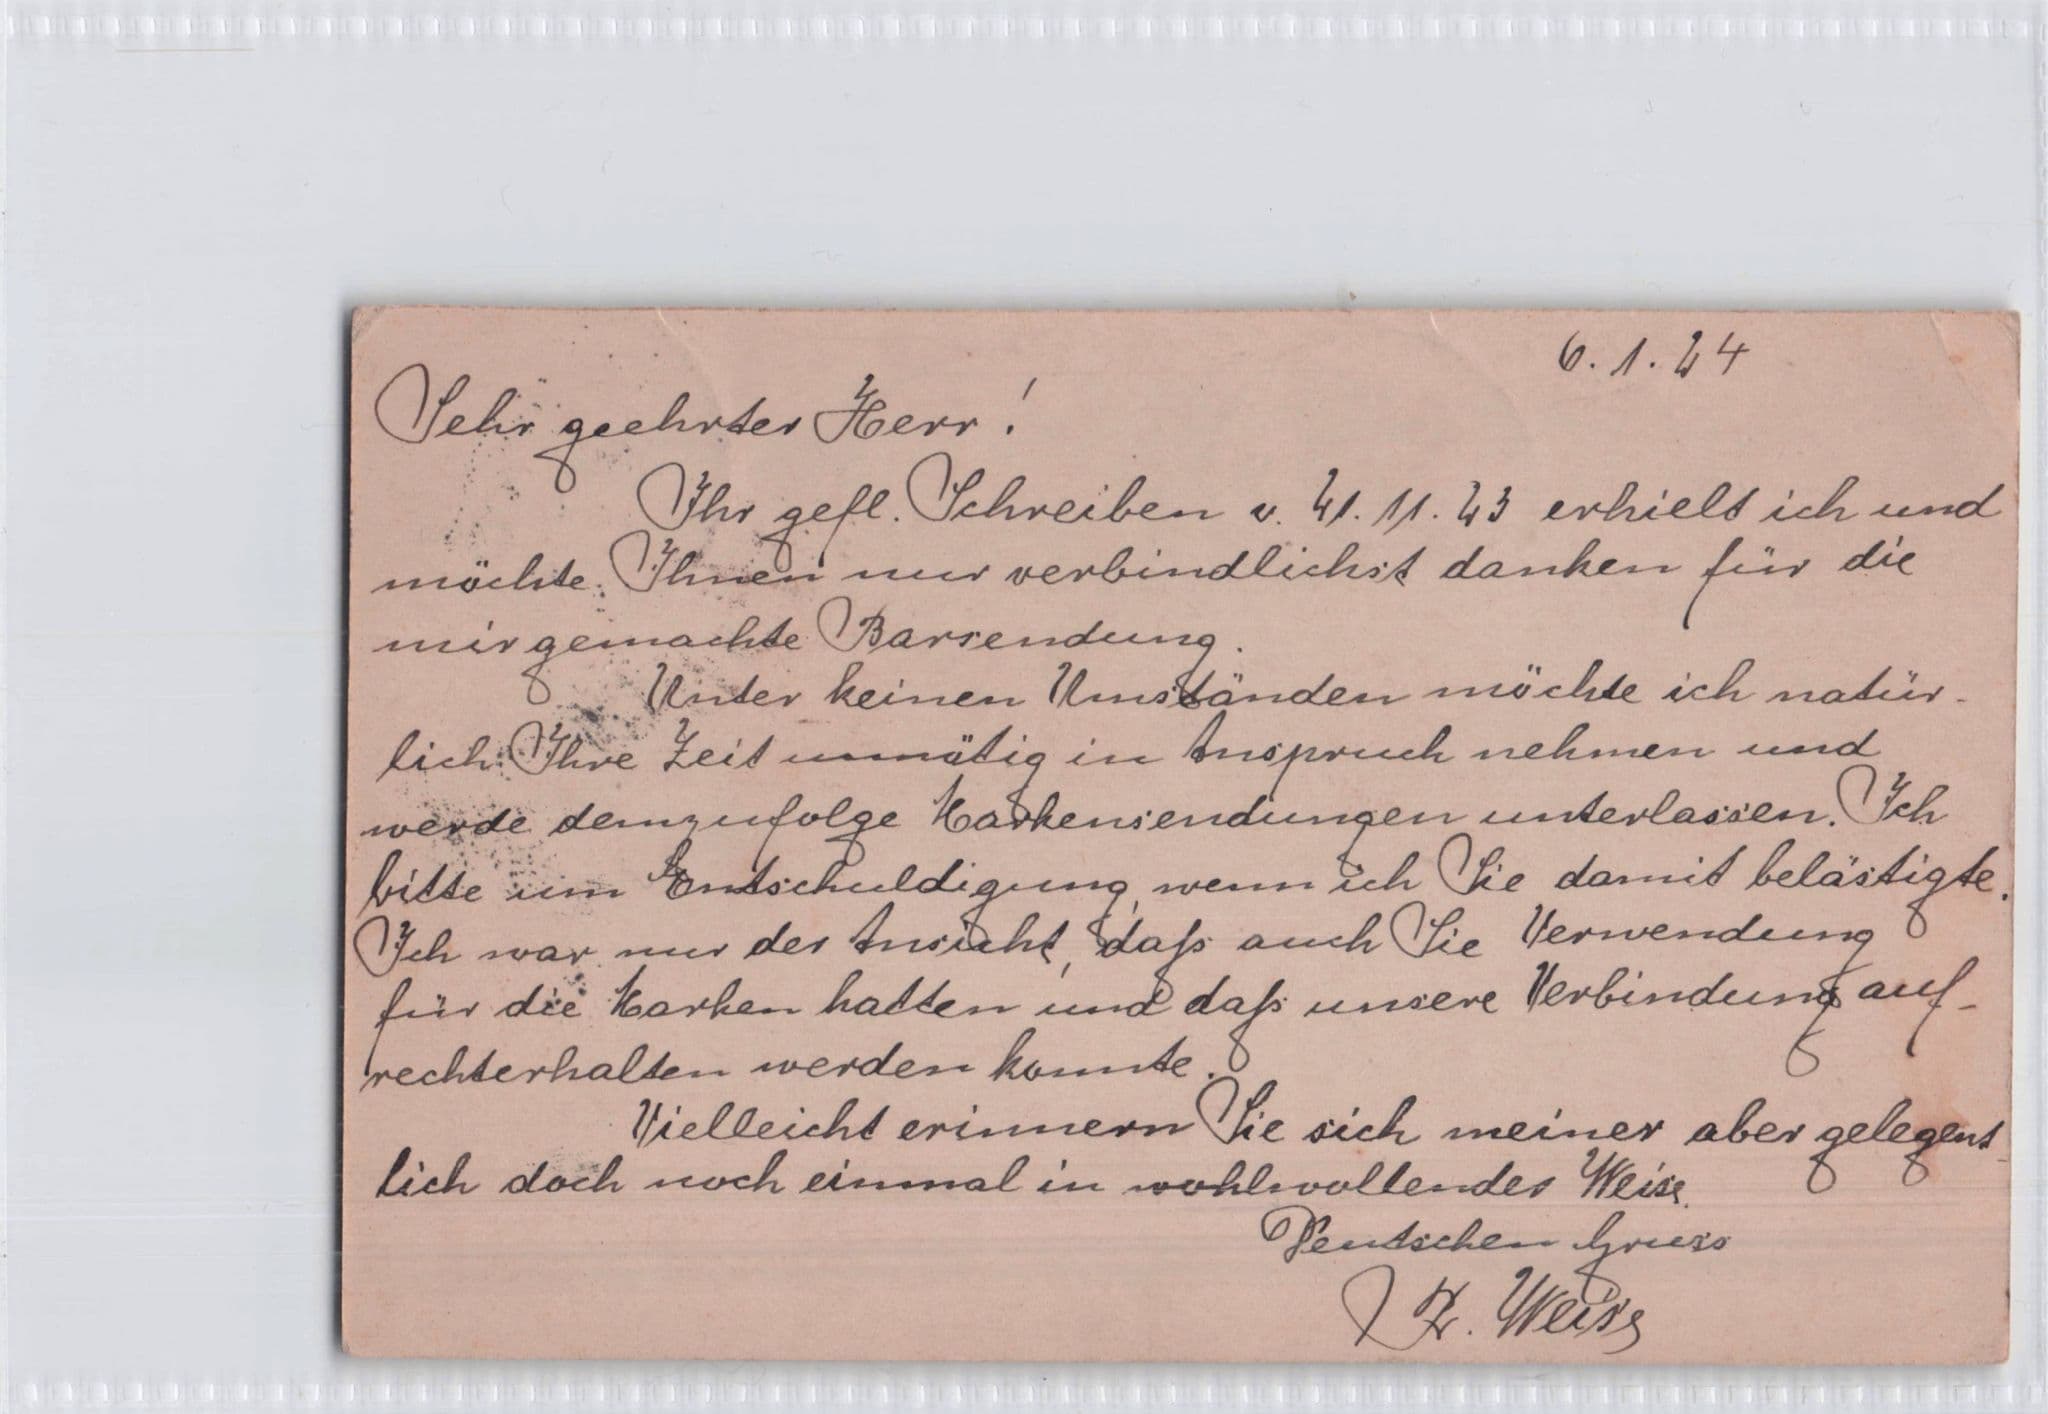 6.1.24
Sehr geehrter Herr!
Ihr gefl. Schreiben v. 21.11.23 erhielt ich und
möchte Ihnen nur verbindlichst danken für die
mir gemachte Barsendung.
Unter keinen Umständen möchte ich natür-
lich Ihre Zeit unnötig in Anspruch nehmen und
werde demzufolge Markensendungen unterlassen. Ich
bitte um Entschuldigung, wenn ich Sie damit belästigte.
Ich war nur der Ansicht, daß auch Sie Verwendung
für die Marken hatten und daß unsere Verbindung auf-
rechterhalten werden konnte.
Vielleicht erinnern Sie sich meiner aber gelegent-
lich doch noch einmal in wohlwollender Weise.
Deutschen Gruss
Weiss